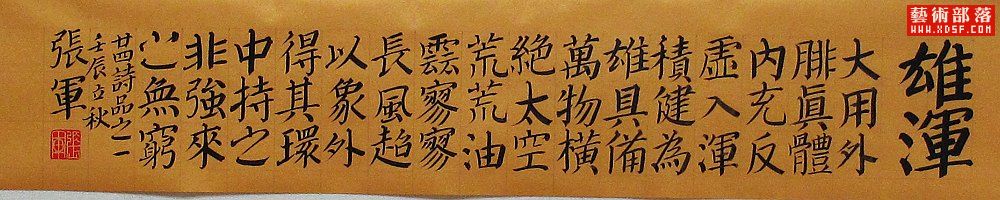 藝術部落
www.XDSF.com
雄渾
大用外
腓眞體
內充反
虛入渾
積健為
雄具備
萬物橫
絕太空
荒荒油
雲寥寥
長風超
以象外
得其環
中持之
非強來
之無窮
廿四詩品之一
壬辰立秋
張軍
張軍